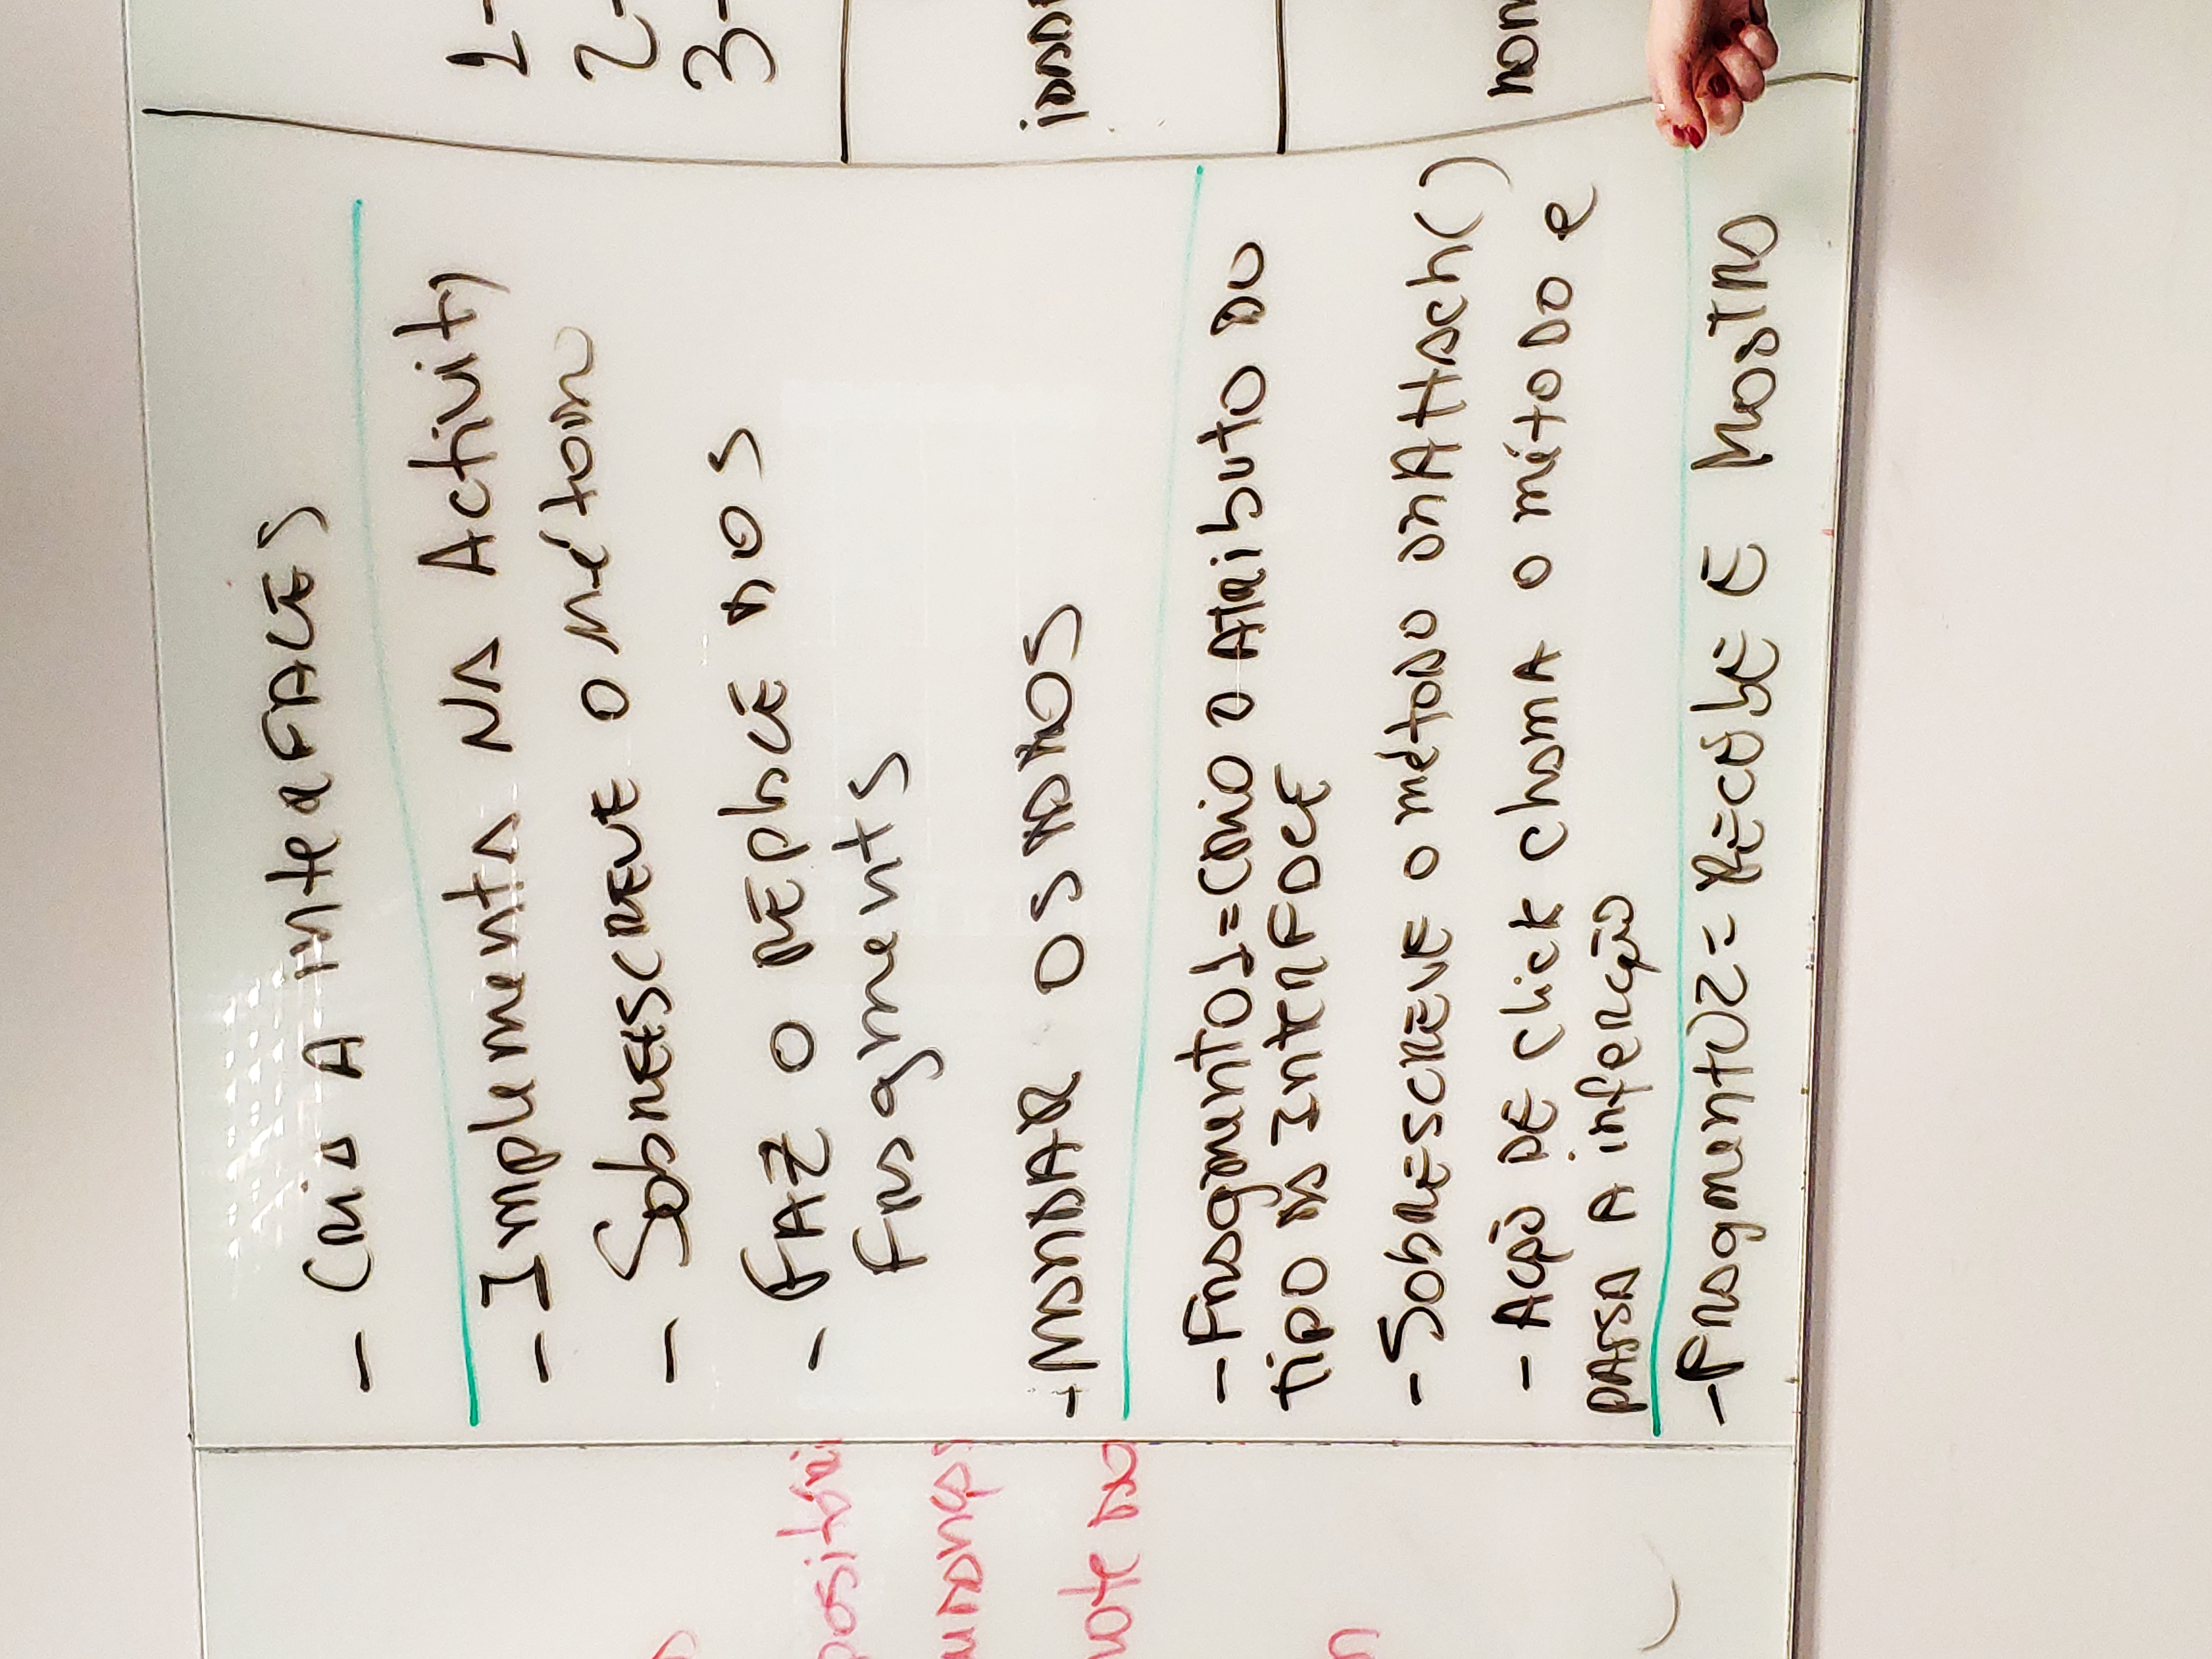 - Cria A interFACES
- Implementa NA Activity
- SobreEsCREVE o método
- FAZ o REplaCE dos
Fragments
- MANDAR OS DADOS
- Fragmento1 = Crio o Atributo do
tipo da InterFace
- SobrESCREVE o método onAttach()
- Ação DE click chama o método e
PASSA A inforção
- Fragmento2 = RECEbE E MOSTRA
positóri
mudanças
note do
1-
2-
3-
idade
nom